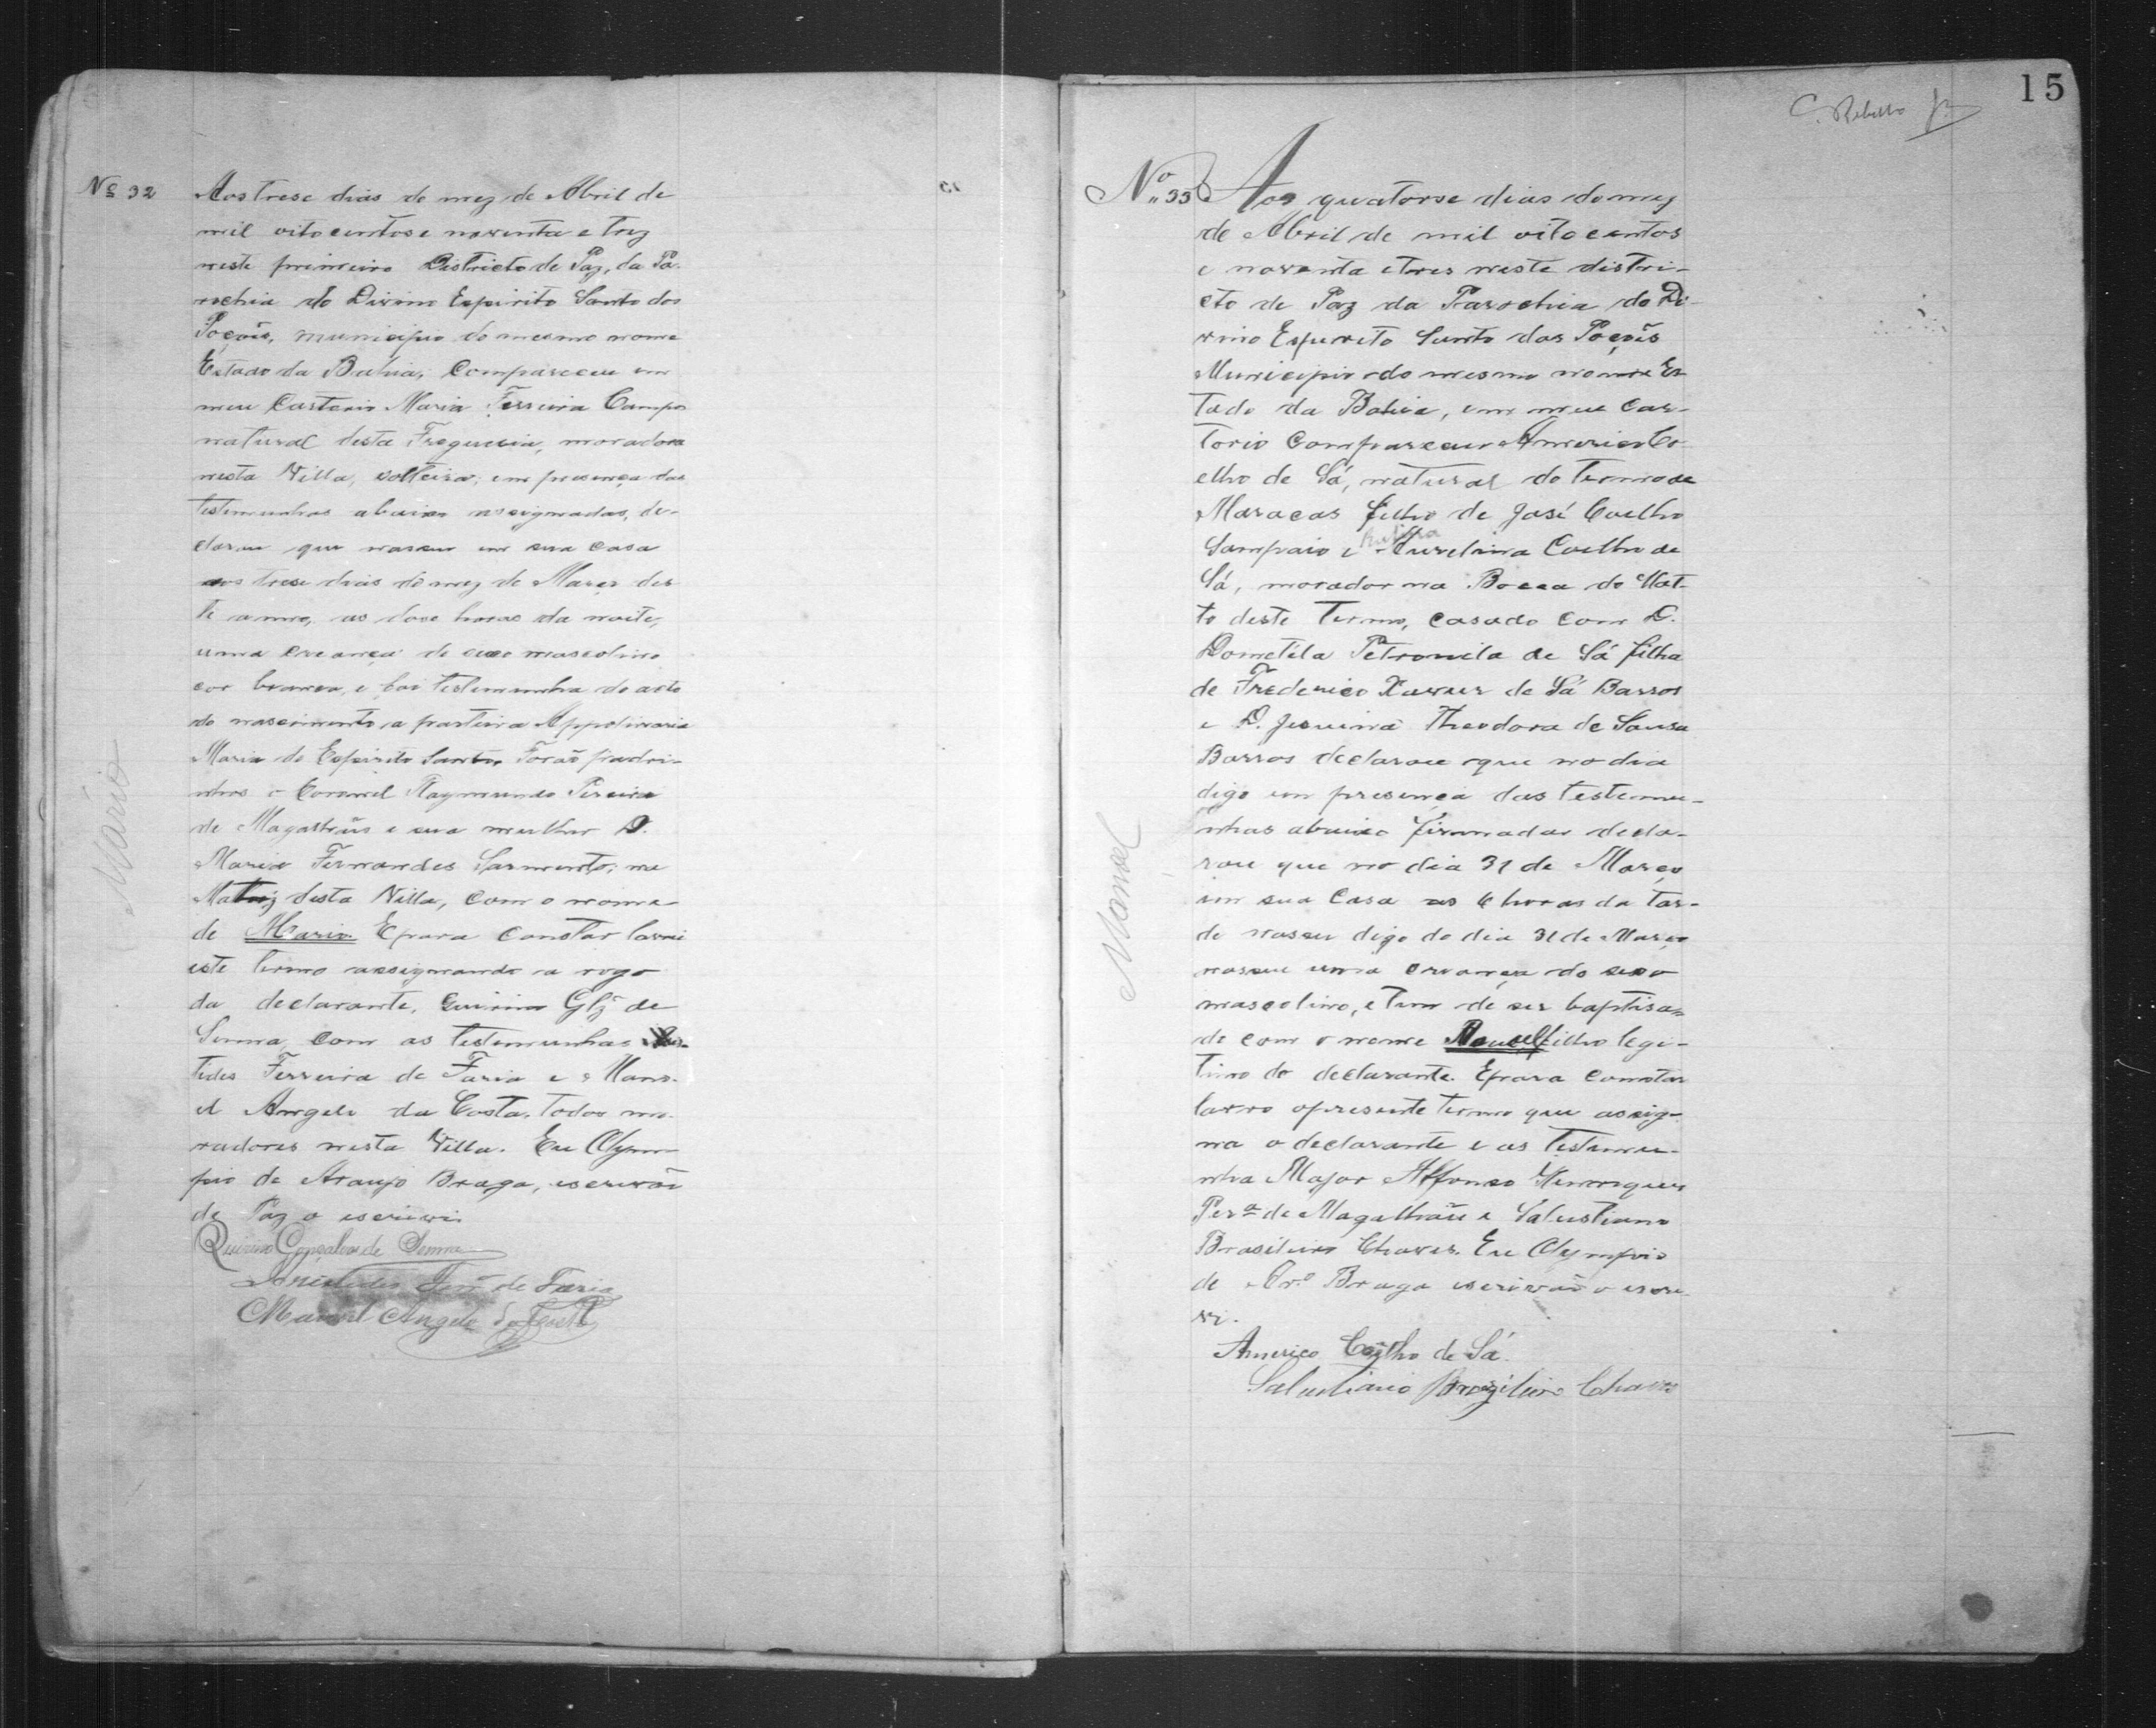 Nº 32
Aos trese dias do mez de Abril de
mil oito centos e noventa e trez
neste primeiro Districto de Paz, da Pa-
rochia do Divino Espirito Santo dos
Poções, municipio do mesmo nome
Estado da Bahia, Compareceu em
meu Cartorio Maria Ferreira Campos
natural desta Freguesia, moradora
nesta Villa, solteira; em presença das
testemunhas abaixo assignadas, de-
clarou que nasceu em sua casa
aos trese dias do mez de Março des-
te anno, as doze horas da noite,
uma creança de sexo mascolino
cor branca, e foi testemunha do acto
do nascimento a parteira Appolinaria
Maria do Espirito Santo. Forão padri-
nhos o Coronel Raymundo Pereira
de Magalhães e sua mulher D.
Maria Fernandes Sarmento; na
Matriz desta Villa, com o nome
de Mario. E para constar lavrei
este termo assignando a rogo
da declarante, Quirino Glz de
Senna, com as testemunhas
tides Ferreira de Faria e Mano-
el Angelo da Costa, todos mo-
radores nesta Villa. Eu Olym-
pio de Araujo Braga, escrivão
de Paz o escrivi
Quirino Gonçalves de Senna
Aristides Ferrª de Faria
Manoel Angelo da Costa
Mario
15
C. Rebello Jr.
Nº 33
Aos quatorse dias do mez
de Abril de mil oito centos
e noventa e tres neste distri-
cto de Paz da Parochia do Di-
vino Espirito Santo dos Poções
Municipio do mesmo nome Es-
tado da Bahia, em meu Car-
torio Compareceu Americo Co-
elho de Sá, natural do termo de
Maracas filho de José Coelho
Sampaio e Aurelina Coelho de
Sá, morador na Bocca do Mat-
to deste Termo, casado com D.
Dometila Petronila de Sá filha
de Frederico Xavier de Sá Barros
e D. Jesuina Theodora de Sousa
Barros declarou que no dia
digo em presença das testemu-
nhas abaixo firmadas decla-
rou que no dia 31 de Março
em sua Casa as 6 horas da tar-
de nasceu digo do dia 31 de Março
nasceu uma creança do sexo
mascolino, e tem de ser baptisa-
do com o nome Manoel filho legi-
timo do declarante. E para constar
lavro o presente termo que assig-
na o declarante e as testemu-
nha Major Affonso Henriques
Perª de Magalhães e Salustiano
Brasileiro Chaves. Eu Olympio
de Arº Braga escrivão o escre-
vi.
Americo Coelho de Sá.
Salustiano Brazileiro Chaves
Manoel